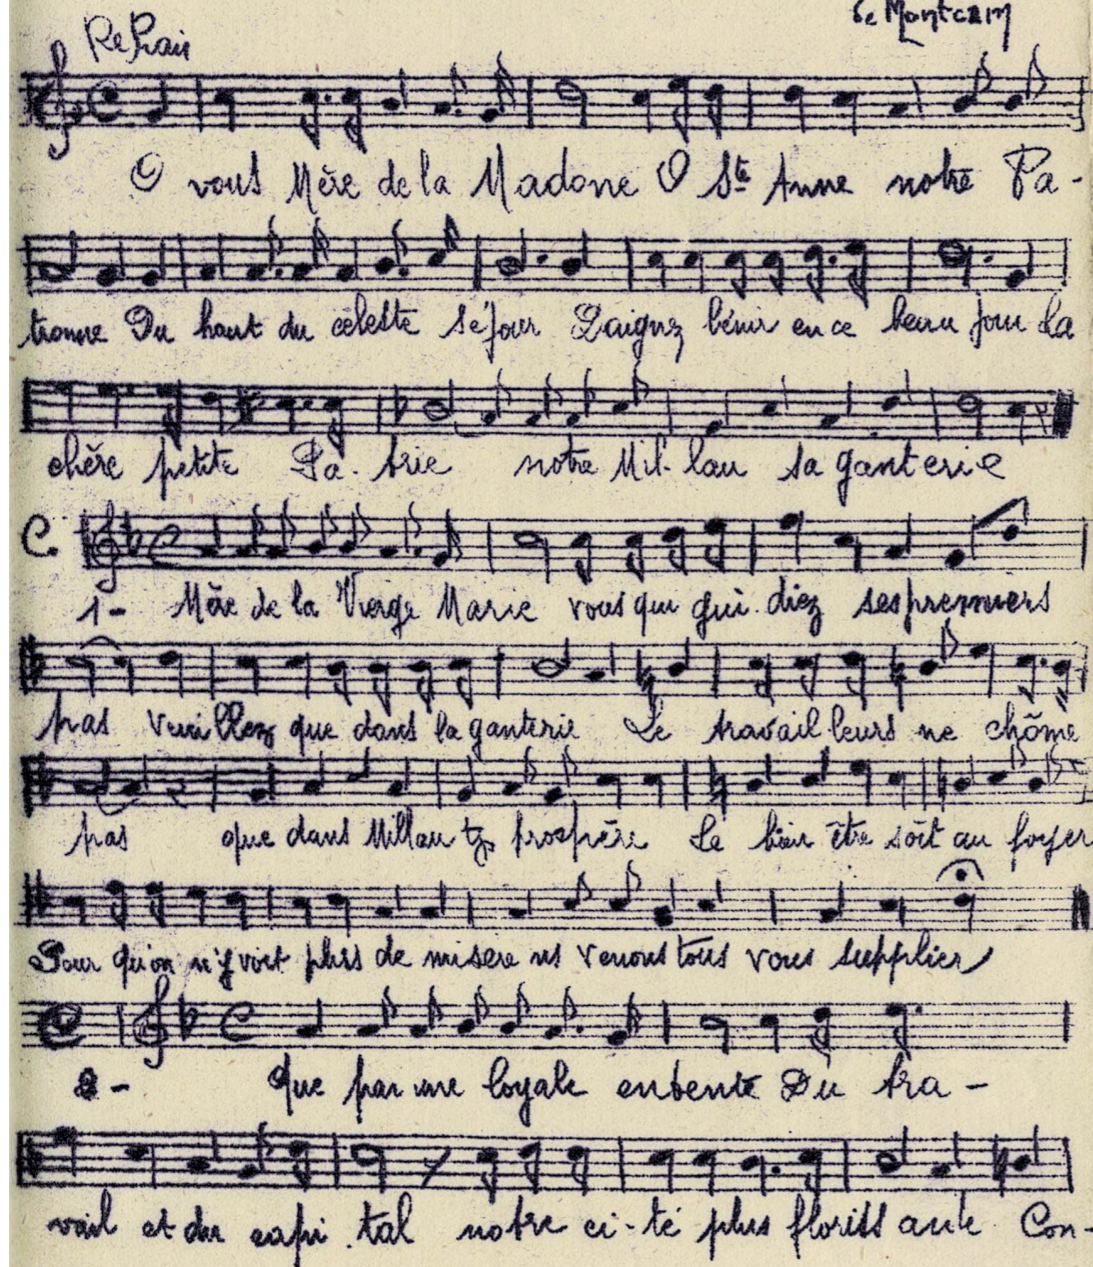 de Montcalm
Refrain
O vous Mère de la Madone O Ste Anne notre Pa-
tronne Du haut du céleste séjour Daignez bénir en ce beau jour La
chère petite Pa-trie notre Mil-lau sa ganterie
C.
1- Mère de la Vierge Marie vous qui gui-diez ses premiers
pas Veuillez que dans la ganterie Le travailleurs ne chôme
pas que dans Millau prospère Le bien être soit au foyer
Pour qu'on n'y voit plus de misere ns venons tous vous supplier
2- Que par une loyale entente Du tra-
vail et du capi.tal notre ci-té plus florissante Con-